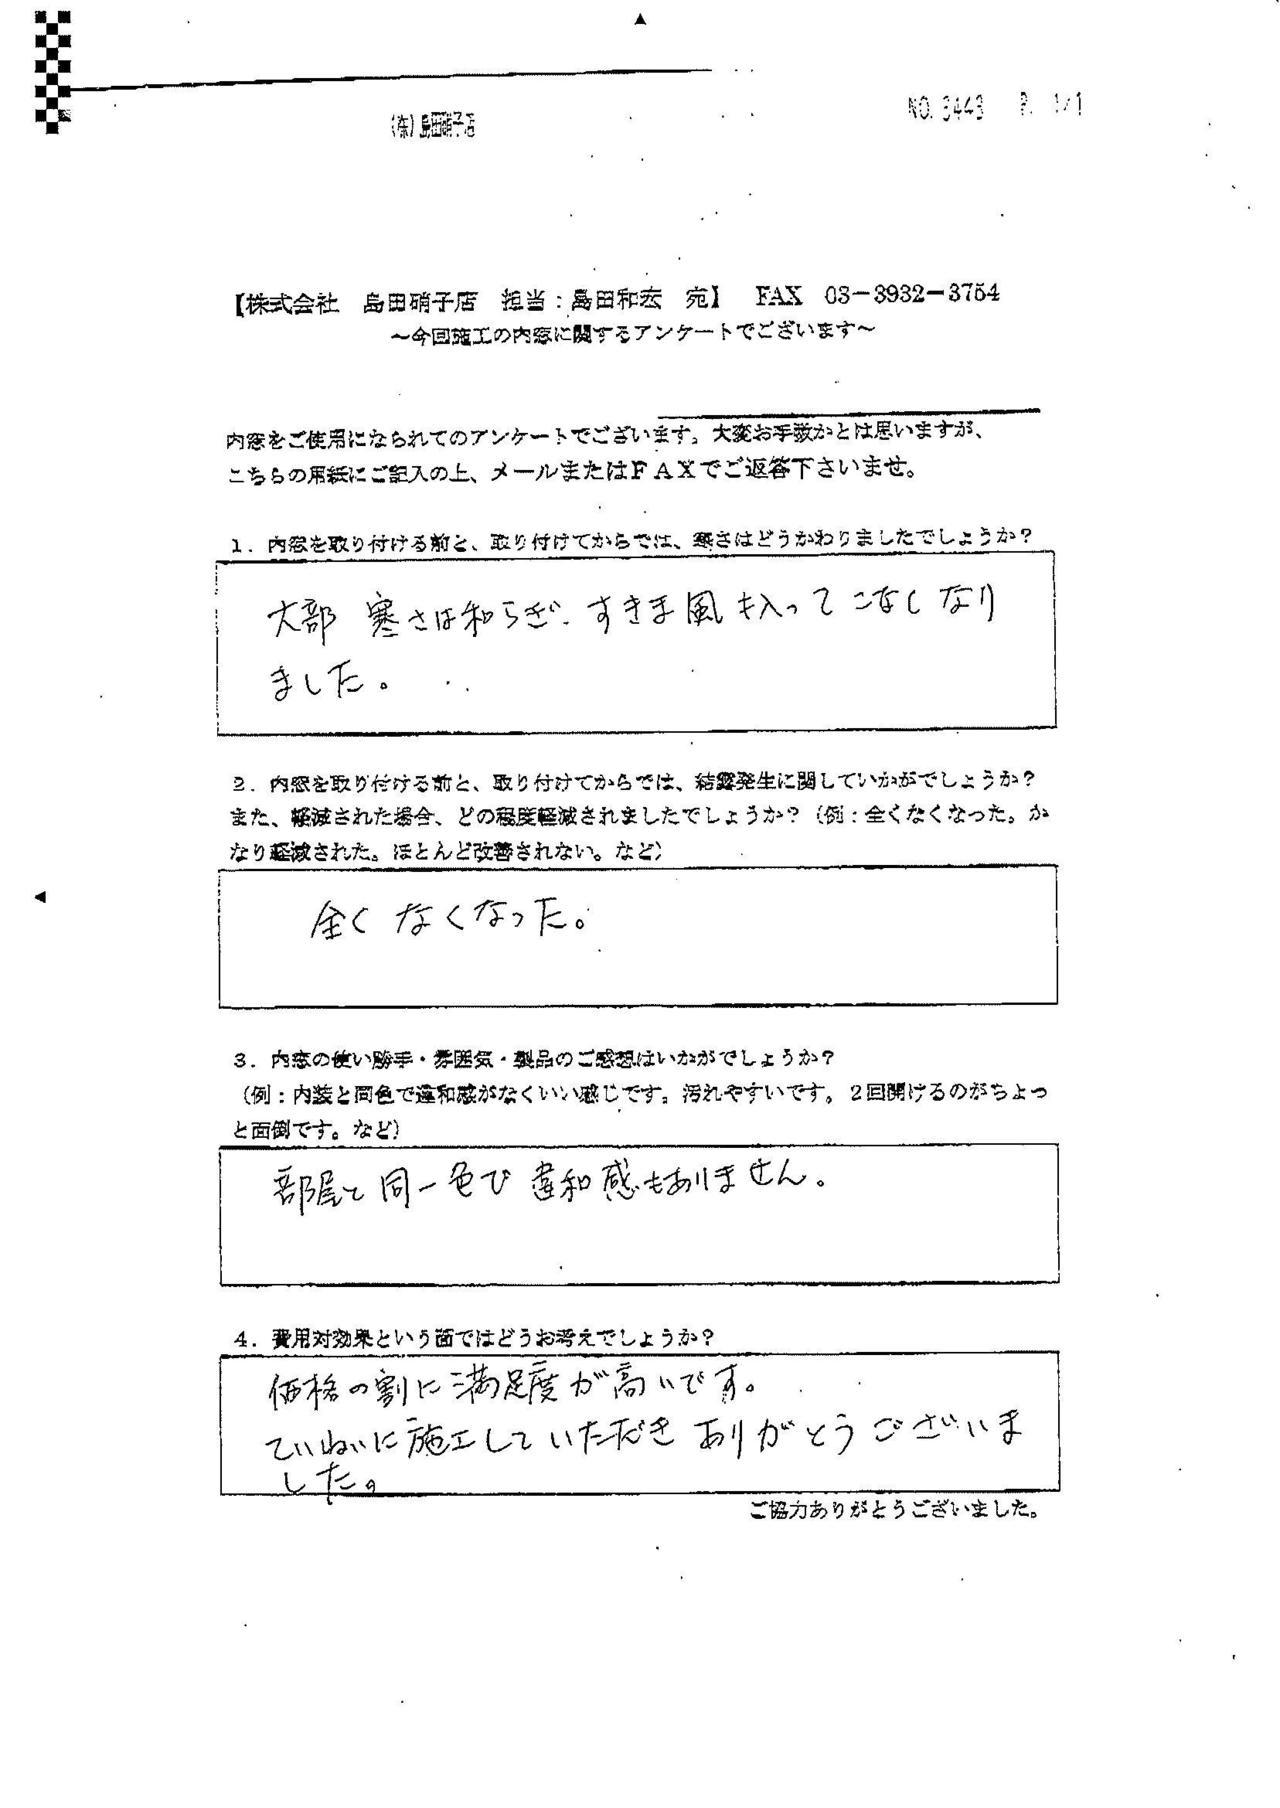 (株)島田硝子店
NO. 3443 P. 1/1
【株式会社 島田硝子店 担当:島田和宏 宛】 FAX 03-3932-3754
~今回施工の内窓に関するアンケートでございます~
内窓をご使用になられてのアンケートでございます。大変お手数かとは思いますが、
こちらの用紙にご記入の上、メールまたはFAXでご返答下さいませ。
1.内窓を取り付ける前と、取り付けてからでは、寒さはどうかわりましたでしょうか?
大部 寒さは和らぎ、すきま風も入ってこなくなり
ました。
2.内窓を取り付ける前と、取り付けてからでは、結露発生に関していかがでしょうか?
また、軽減された場合、どの程度軽減されましたでしょうか?(例:全くなくなった。か
なり軽減された。ほとんど改善されない。など)
全くなくなった。
3.内窓の使い勝手・雰囲気・製品のご感想はいかがでしょうか?
(例:内装と同色で違和感がなくいい感じです。汚れやすいです。2回開けるのがちょっ
と面倒です。など)
部屋と同一色で違和感もありません。
4.費用対効果という面ではどうお考えでしょうか?
価格の割に満足度が高いです。
ていねいに施工していただきありがとうございま
した。
ご協力ありがとうございました。